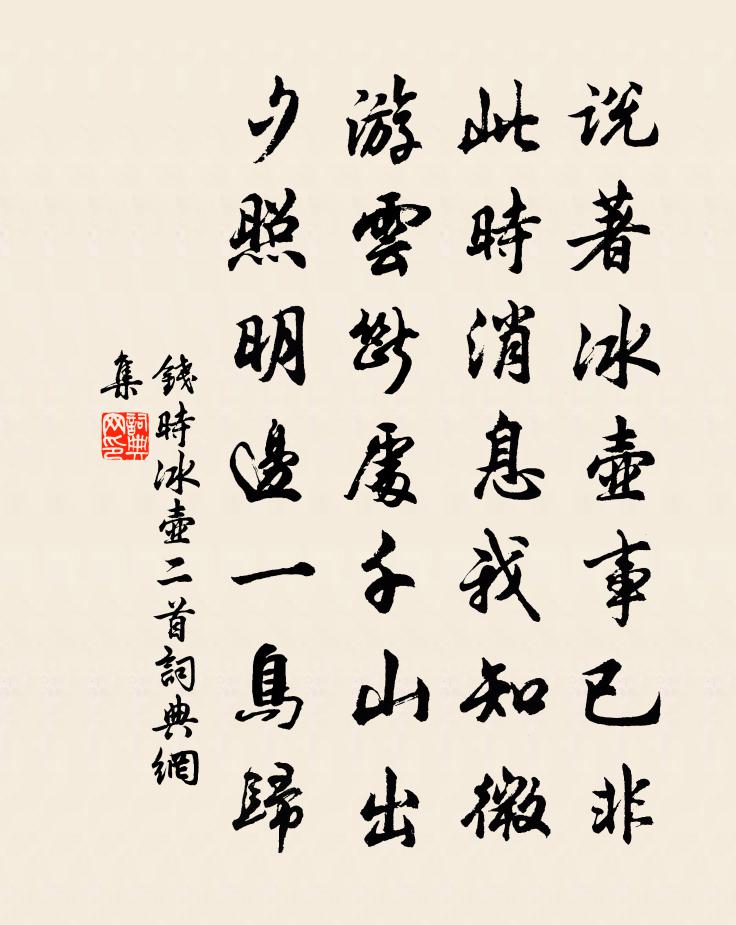 説著冰壺事已非
此時消息我知微
游雲斷處千山出
夕照明邊一鳥歸
錢時冰壺二首詞典網
集
詞典
网印